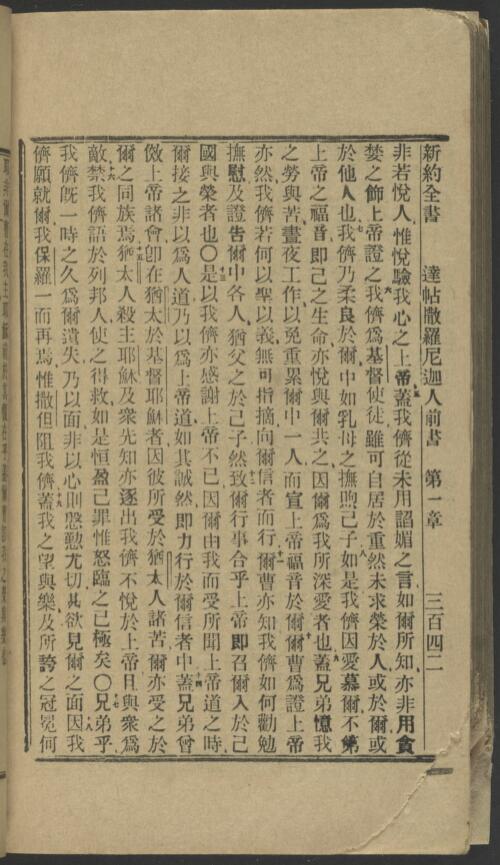 新約全書 達帖撒羅尼迦人前書 第一章 三百四二
非若悅人惟悅驗我心之上帝蓋我儕從未用諂媚之言如爾所知亦非用貪
婪之飾上帝證之我儕爲基督使徒雖可自居於重然未求榮於人或於爾或
於他人也我儕乃柔良於爾中如乳母之撫煦己子如是我儕因愛慕爾不第
上帝之福音卽己之生命亦悅與爾共之因爾爲我所深愛者也蓋兄弟憶我
之勞與苦晝夜工作以免重累爾中一人而宣上帝福音於爾爾曹爲證上帝
亦然我儕若何以聖以義無可指摘向爾信者而行爾曹亦知我儕如何勸勉
撫慰及證告爾中各人猶父之於己子然致爾行事合乎上帝卽召爾入於己
國與榮者也〇是以我儕亦感謝上帝不已因爾由我而受所聞上帝道之時
爾接之非以爲人道乃以爲上帝道如其誠然卽力行於爾信者中蓋兄弟曾
傚上帝諸會卽在猶太於基督耶穌者因彼所受於猶太人諸苦爾亦受之於
爾之同族焉猶太人殺主耶穌及衆先知亦逐出我儕不悅於上帝且與衆爲
敵禁我儕語於列邦人使之得救如是恒盈己罪惟怒臨之已極矣〇兄弟乎
我儕旣一時之久爲爾遺失乃以面非以心則愍懃尤切甚欲見爾之面因我
儕願就爾我保羅一而再焉惟撒但阻我儕蓋我之望與樂及所誇之冠冕何